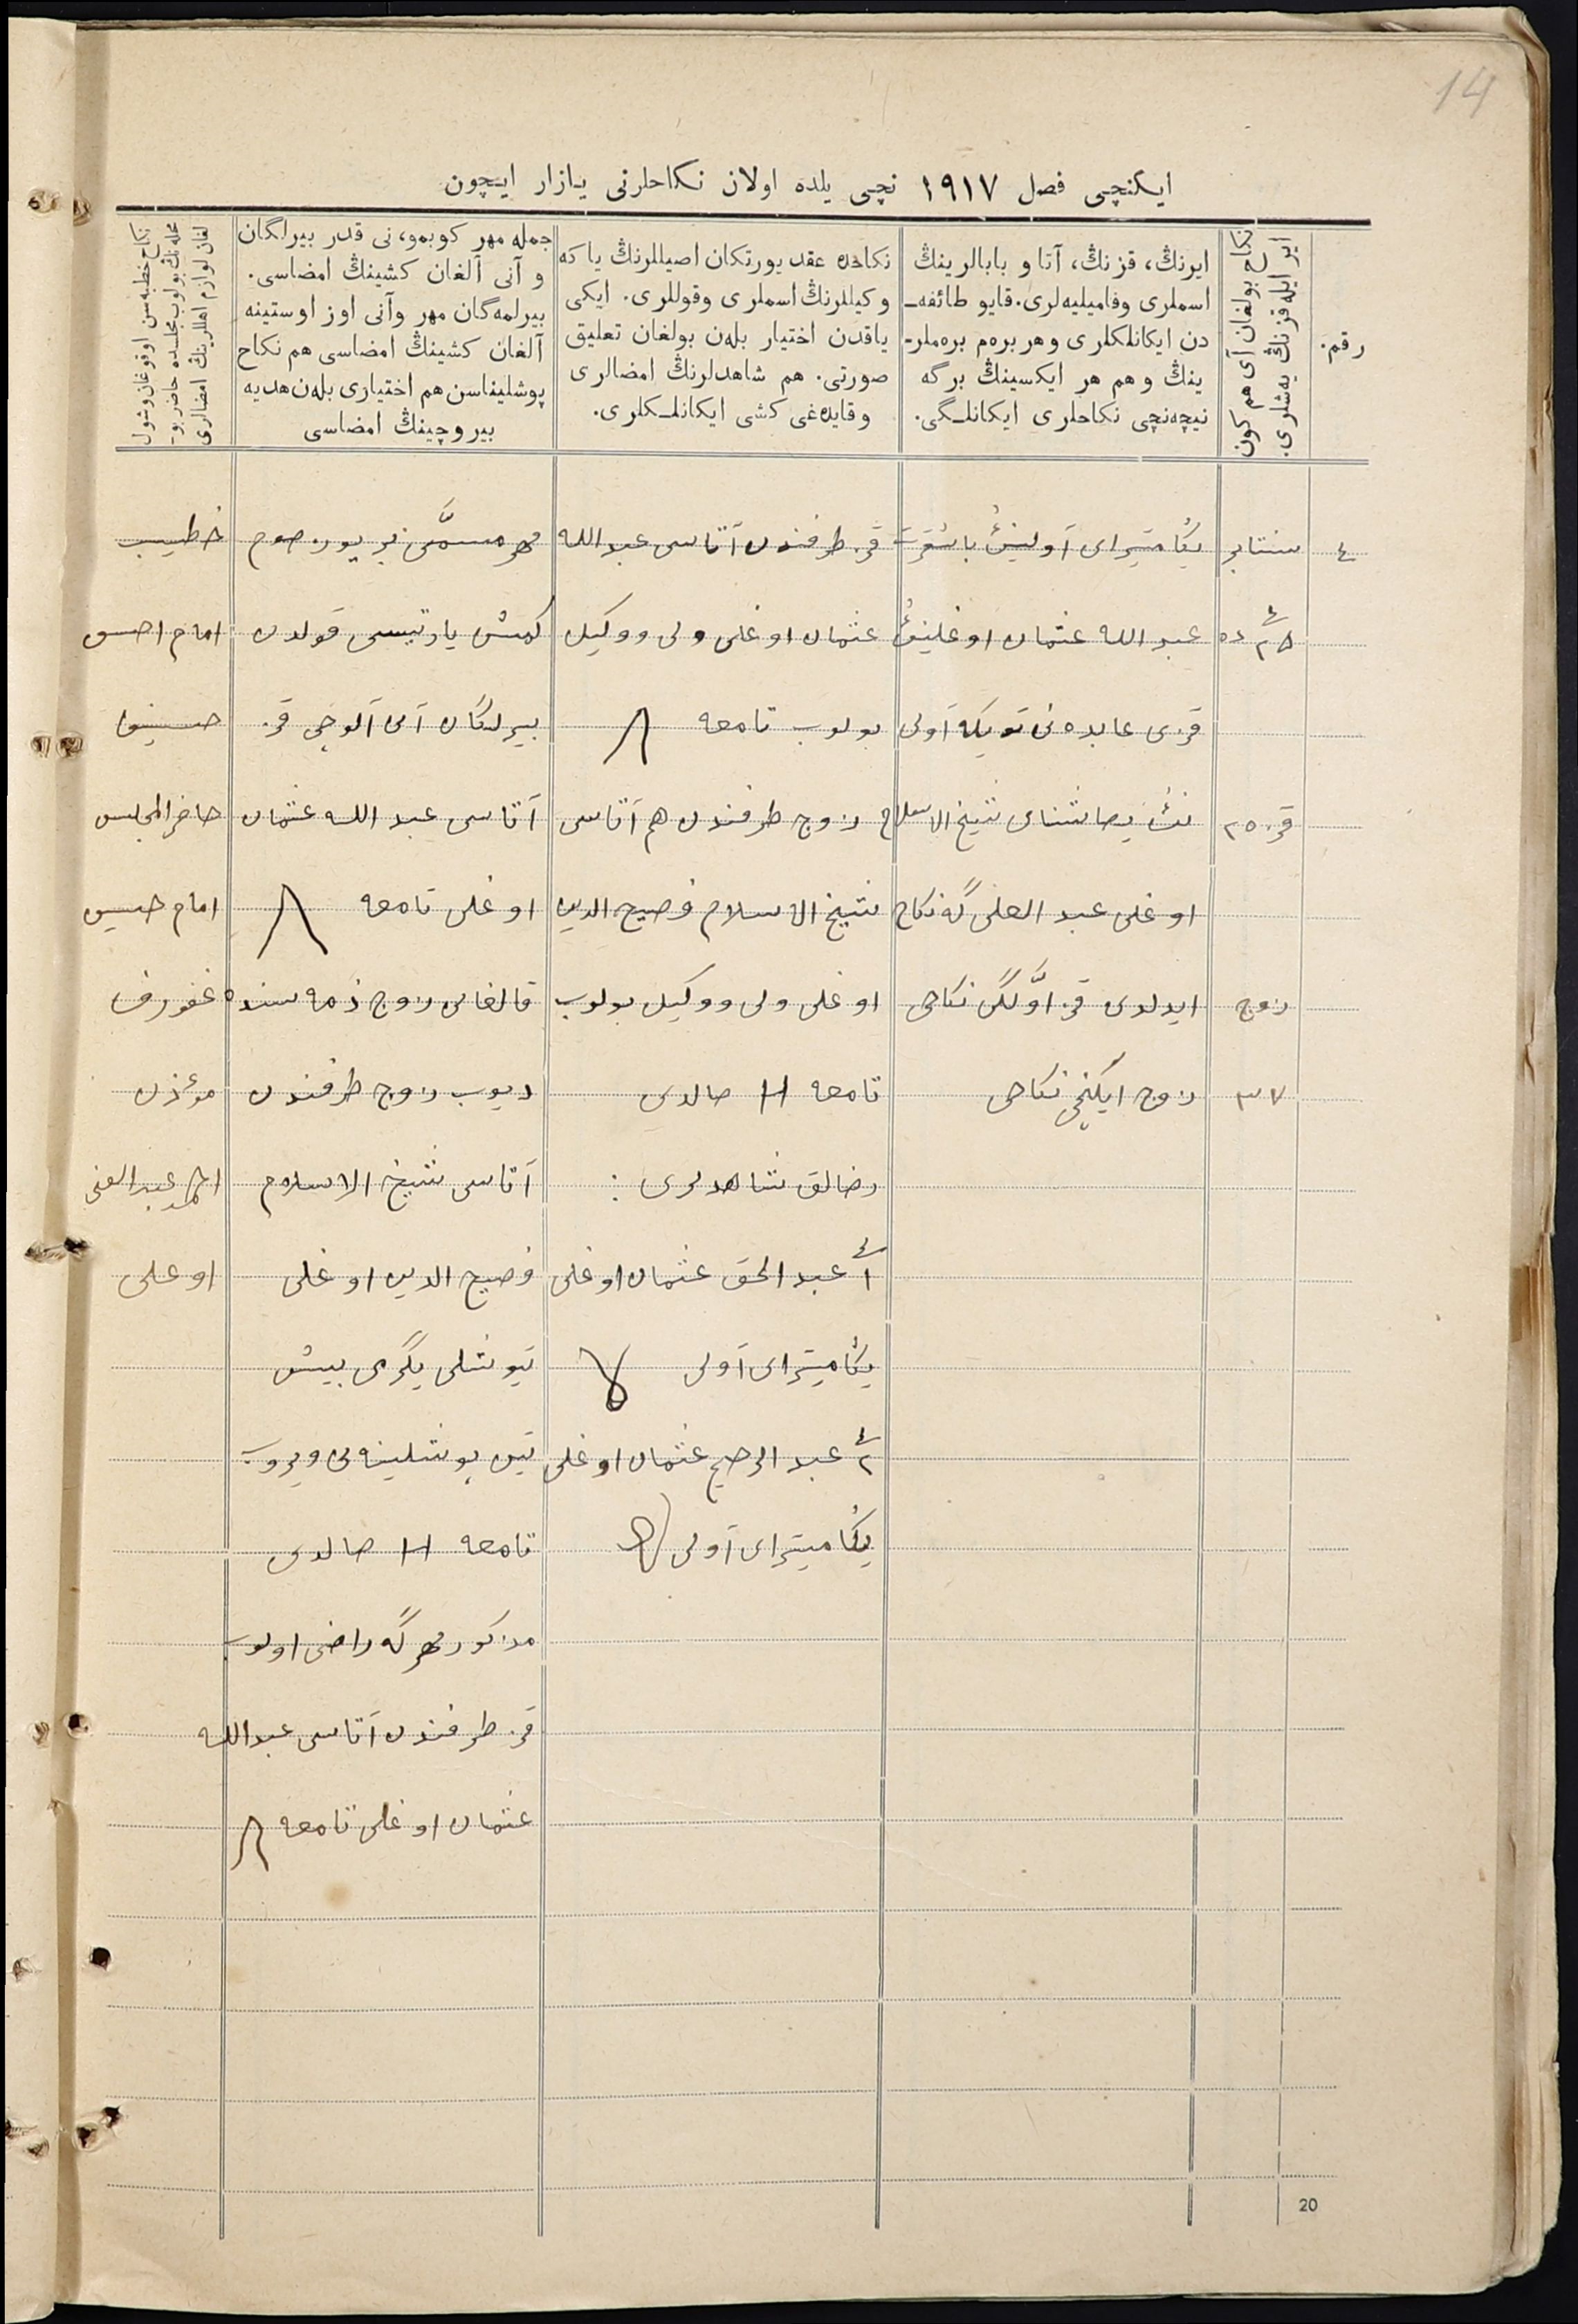 14
ایکنچی فصل ۱۹۱۷ نچی یلده اولان نکاحلرنی یازار ایچون
رقم.
نکاح بولغان آی هم کون
ایر ایله قز نڭ یه‌شلری.
ایرنڭ، قزنڭ، آتا و بابالرینڭ
اسملری وفامیلیه‌لری. قایو طائفه‌ـ
دن ایکانلکلری وهر بره‌م بره‌ملرـ
ینڭ و هم هر ایکسینڭ برگه
نیچه‌نچی نکاحلری ایکانلـگی.
نکاحده عقد یورتکان اصیللرنڭ یا که
وکیللرنڭ اسملری وقوللری. ایکی
یاقدن اختیار بله‌ن بولغان تعلیق
صورتی. هم شاهدلرنڭ امضالری
وقایده‌غی کشی ایکانلـکلری.
جمله مهر کوبمو، نی قدر بیرلگان
و آنی آلغان کشینڭ امضاسی.
بیرلمه‌گان مهر وآنی اوز اوستینه
آلغان کشینڭ امضاسی هم نکاح
پوشلیناسن هم اختیاری بله‌ن هدیه
بیروچینڭ امضاسی
نکاح خطبه‌سن اوقوغان وشول
محله‌نڭ بولوب مجلسده حاضر بوـ
لغان لوازم اهللرینڭ امضالری
٤
سنتابر
٢٥ ده
قز ٢٥
زوج
٣٧
یڭا میتراى آولینڭ باشقرت
عبد الله عثمان اوغلینڭ
قزى عابده نى توبکه آولى
نڭ شیخ الاسلام
اوغلى عبد العلى گه نکاح
ایدلدى قز اوّلگى نکاحى
زوج ایکنچى نکاحى
قز طرفندن آتاسى عبد الله
عثمان اوغلى ولى ووکیل
بولوب تامعه
زوج طرفندن هم آتاسى
شیخ الاسلام فصیح الدین
اوغلى ولى ووکیل بولوب
تامعه H صالدى
رضالق شاهدلرى :
١ عبد الحق عثمان اوغلى
یڭا میتراى آولى
٢ عبد الرحیم عثمان اوغلى
یڭا میتراى آولى
مهر مسمّى بر یوز صوم
کمش یارتیسى قولدن
بیرلگان آنى آلوچى قز
آتاسى عبد الله عثمان
اوغلى تامعه
قالغانى زوج ذمه سنده
دیوب زوج طرفندن
آتاسى شیخ الاسلام
فصیح الدین اوغلى
تیوشلى یگرمى بیش
تین پوشلینه نى ویروب
تامعه H صالدى
مذکور مهرگه راضى اولوب
قز طرفندن آتاسى عبد الله
عثمان اوغلى تامعه
خطیب
امام احسن
حاضر المجلس
امام حسین
غفورف
مؤذن
احمد عبد الغنى
اوغلى
20